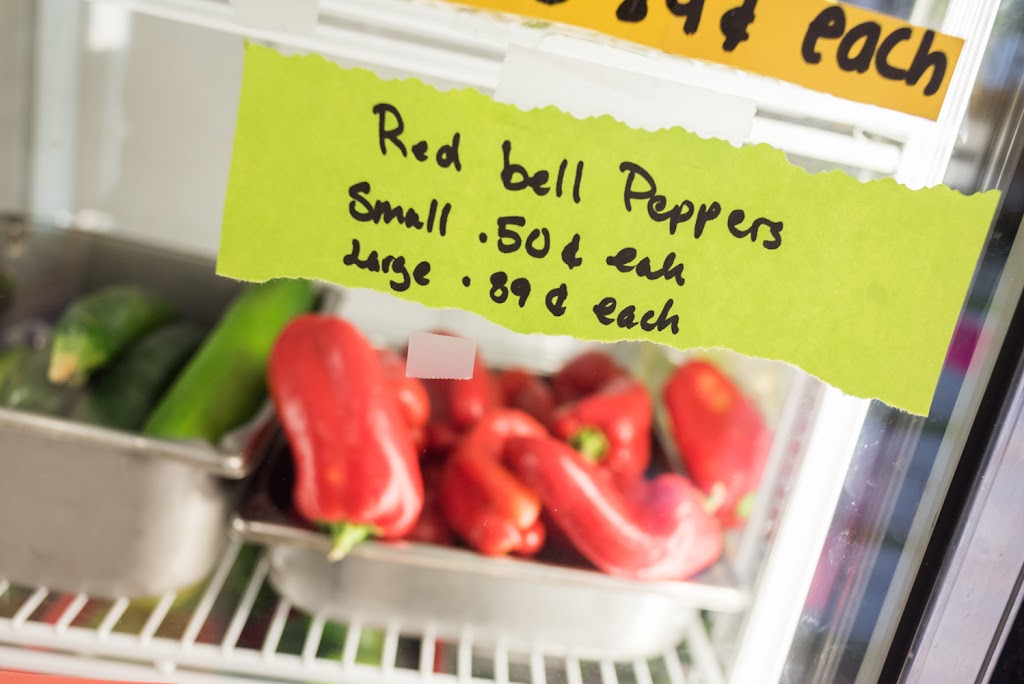 89¢ each
Red bell Peppers
Small .50¢ eah
Large .89¢ each